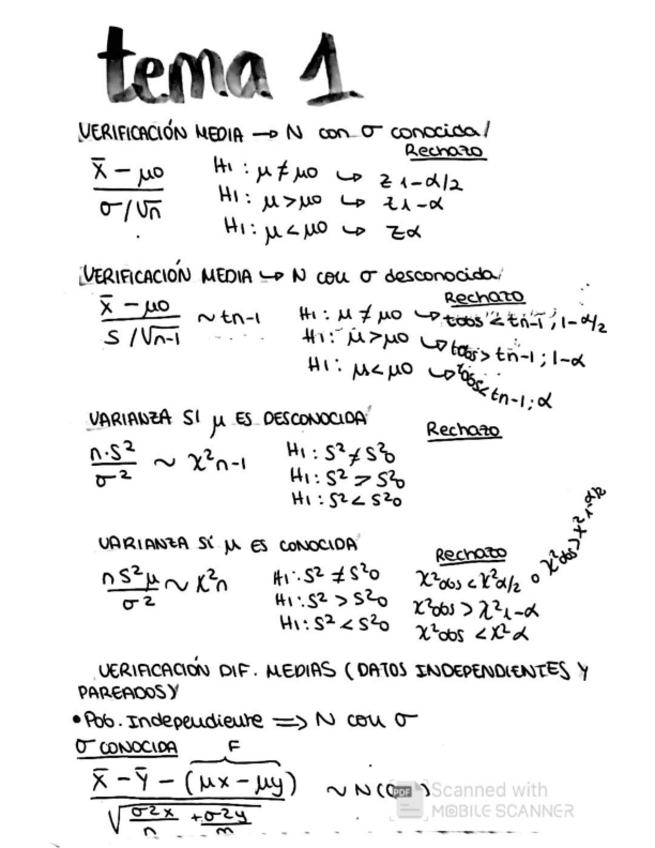 tema 1
VERIFICACIÓN MEDIA → N con σ conocida/
Rechazo
X̄ − μ0 / σ/√n
H1: μ ≠ μ0 ↪ z 1-α/2
H1: μ > μ0 ↪ z 1-α
H1: μ < μ0 ↪ zα
VERIFICACIÓN MEDIA ↪ N con σ desconocida
Rechazo
X̄ − μ0 / S/√n-1 ~ tn-1
H1: μ ≠ μ0 ↪ tobs < tn-1; 1-α/2
H1: μ > μ0 ↪ tobs > tn-1; 1-α
H1: μ < μ0 ↪ tobs < tn-1; α
VARIANZA SI μ ES DESCONOCIDA
Rechazo
n·S² / σ² ~ χ²n-1
H1: S² ≠ S²0
H1: S² > S²0
H1: S² < S²0
VARIANZA SI μ ES CONOCIDA
Rechazo
nS²μ / σ² ~ χ²n
H1: S² ≠ S²0 χ²obs < χ²α/2 o χ²obs > χ²1-α/2
H1: S² > S²0 χ²obs > χ²1-α
H1: S² < S²0 χ²obs < χ²α
VERIFICACIÓN DIF. MEDIAS (DATOS INDEPENDIENTES Y
PAREADOS)
• Pob. Independiente ⇒ N con σ
σ CONOCIDA F
X̄ − Ȳ − (μx − μy) / √σ²x/n + σ²y/m ~ N(0
PDF Scanned with
MOBILE SCANNER